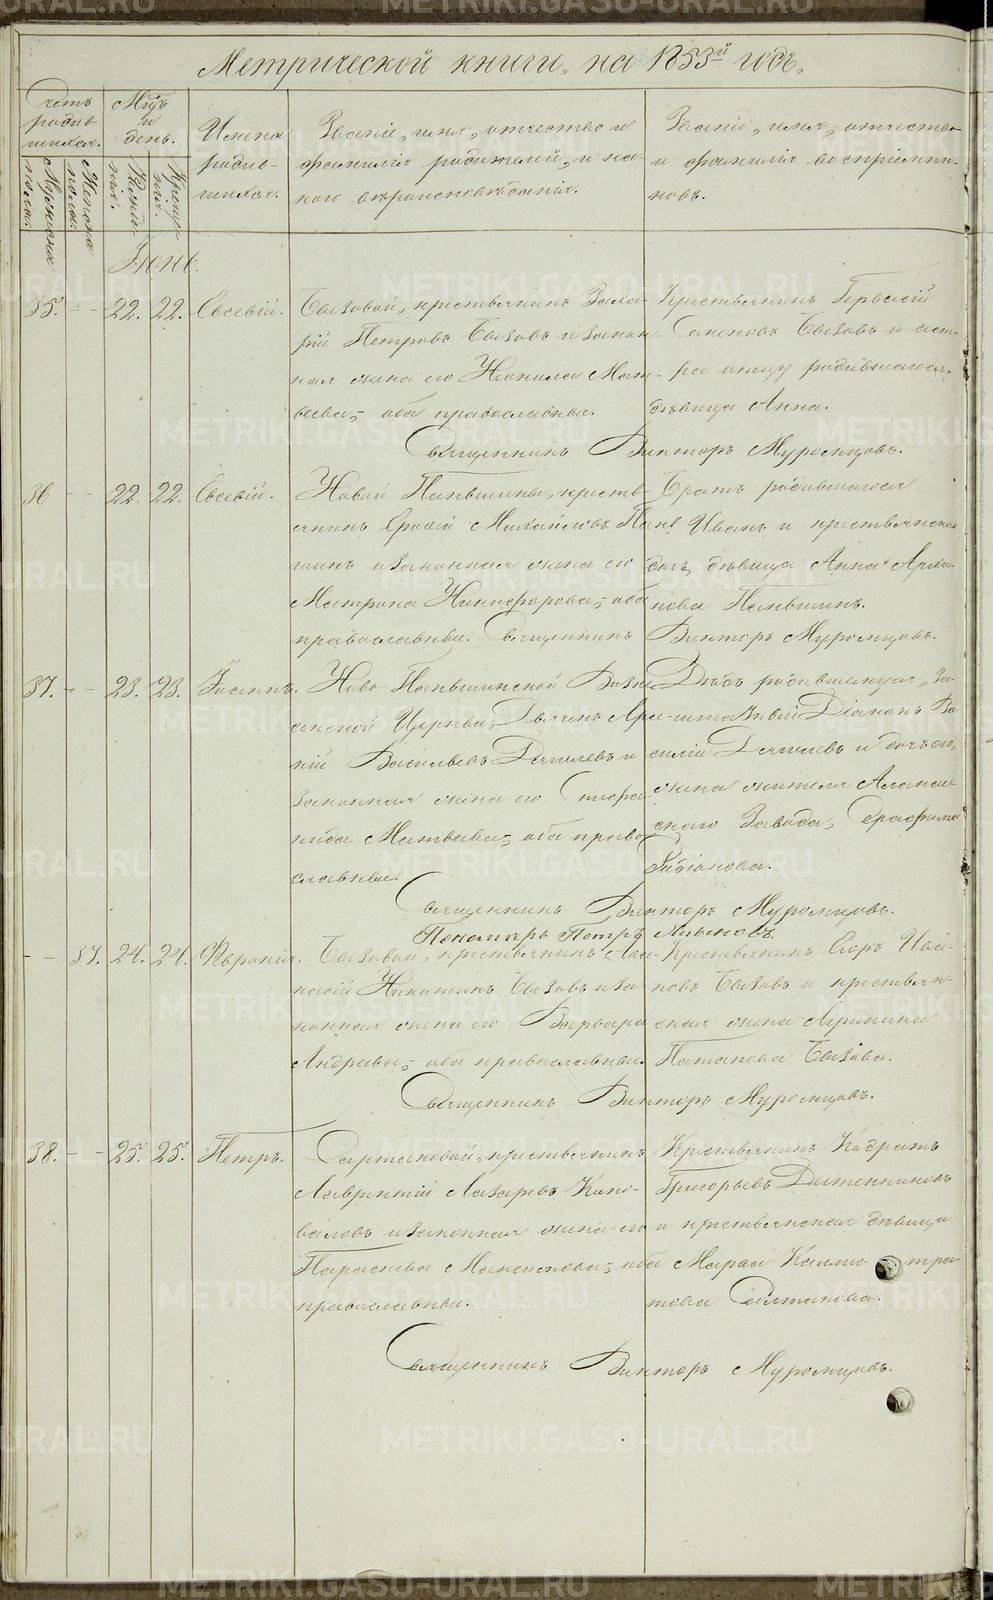 Метрической книги, на 1853й годъ,
Счетъ родив-
шихся.
Мужеска
пола.
Женска
пола.
Мѣс.
и
день.
Рожде-
нія.
Креще-
нія.
Имена
родив-
шихся.
Званіе, имя, отчество и
фамилія родителей, и ка-
кого вѣроисповѣданія.
Званіе, имя, отчество
и фамилія воспріемни-
ковъ.
Іюнь.
35. - - 22. 22. Евсевій.
Бызовой, крестьянинъ
Петровъ Бызовъ и закон-
ная жена его Неонила Мат-
вѣева, оба православные.
Крестьянинъ Гервасій
Бызовъ и сест-
ра отцу родившагося,
дѣвица Анна.
Священникъ Викторъ Муромцовъ.
36 - - 22. 22. Евсевій.
Новой Паньшины, кресть-
янинъ Михайловъ Пань-
шинъ и законная жена его
Матрона Никифорова, оба
православные.
Братъ родившагося
Иванъ и крестьянская
дочь, дѣвица Анна
Паньшинъ.
Священникъ Викторъ Муромцовъ.
37. - - 23. 23. Іоаннъ.
Ново-Паньшинской Возне-
сенской Церкви, Дьячекъ Арка-
дій Васильевъ и
законная жена его Стефа-
нида Матвѣева, оба право-
славные.
Дѣдъ родившагося, За-
штатный Діаконъ Ва-
силій и дочь его,
жена жителя Алапаев-
скаго Завода, Серафима
Священникъ Викторъ Муромцовъ.
Пономарь Петръ
- - 37. 24. 24. Февронія.
Бызовой, крестьянинъ Афа-
насій Никитинъ Бызовъ и за-
конная жена его Варвара
Андреева, оба православные.
Крестьянинъ Егоръ Ива-
новъ Бызовъ и крестьян-
ская жена
Потапова Бызова.
Священникъ Викторъ Муромцовъ.
38. - - 25. 25. Петръ.
крестьянинъ
Лаврентій Лазаревъ Коно-
валовъ и законная жена его
Параскева оба
православные.
Крестьянинъ Кодратъ
Григорьевъ
и крестьянская дѣвица
Марѳа Каллис-тра-
това
Священникъ Викторъ Муромцовъ.
METRIKI.GASO-URAL.RU